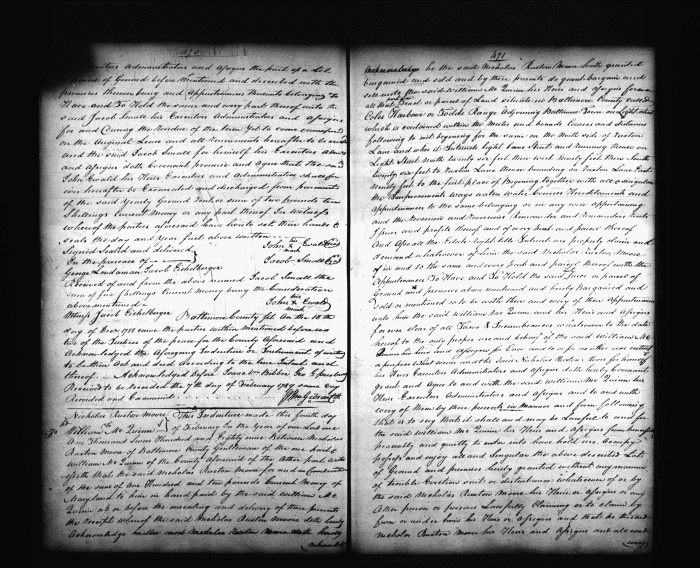 470
Executors Administrators and Assigns the part of a Lot
of Ground before Mentioned and described with the
premises thereunto being and Appurtenances thereunto belonging To
Have and To Hold the same and every part thereof unto the
said Jacob Small his Executors Administrators and Assigns
for and During the Residue of the term Yet to come unexpired
on the Original Lease and all Renewments hereafter to be made
and the said Jacob Small for himself his Executors Admrs
and Assigns doth Covenant promise and Agree that the said
John Ewald his Heirs Executors and Administrators shall for
ever hereafter be Exonerated and discharged from payments
of the said Yearly Ground Rent or sum of two pounds ten
Shillings Current Money or any part thereof In Witness
whereof the parties aforesaid have hereto set their hands &
seals the day and Year first above written
Signed Sealed and delivered
In the presence of
John his X mark Ewald
George Lindaman Jacob Eichelberger
Jacob Small
Received of and from the above named Jacob Small the
sum of five Shillings Current Money being the Consideration
above mentioned
John his X mark Ewald
Jacob Eichelberger
Baltimore County Sct On the 10th
day of Decr 1788 came the parties within Mentioned before us
two of the Justices of the peace for the County Aforesaid and
Acknowledged the Aforegoing Indenture or Instrument of writing
to be their Act and deed according to the true Intent and
thereof Acknowledged before Isaac Van Bibber Geo G Presbury
Received to be Recorded the 7th day of February 1789 same day
Recorded and Examined
Wm Gibson Clk
Nicholas Ruxton Moore This Indenture made this fourth day
William Mc Quinn of February In the Year of our Lord one
One thousand Seven Hundred and Eighty nine Between Nicholas
Ruxton Moore of Baltimore County Gentleman of the one part &
William Mc Quinn of the County Aforesaid of the Other part
that the said Nicholas Ruxton Moore for and in Consideration
of the sum of One Hundred and two pounds Current Money of
Maryland to him in hand paid by the said William Mc
Quinn at or before the ensealing and delivery of these presents
the Receipt whereof the said Nicholas Ruxton Moore doth hereby
Acknowledge
471
Acknowledge he the said Nicholas Ruxton Moore hath granted
bargained and sold and by these presents do grant bargain and
sell unto the said William Mc Quinn his Heirs and Assigns forever
all that Lot or parcel of Land situate in Baltimore County called
Coles Harbour or Todds Range Adjoining Baltimore Town on Light street
which is contained within the Metes and bounds Courses and distances
following to wit beginning for the same on the North side of Ruxton
Lane and also Light Lane Street and running thence on
Light Street North twenty six feet then West Ninety feet then South
twenty six feet to Ruxton Lane thence bounding on Ruxton Lane East
Ninety feet to the first place of Beginning together with all and singular
the Improvements ways waters water Courses Hereditaments and
Appurtenances to the same belonging or in any wise appertaining
And the Reversion and Reversions Remainder and Remainders Rents
Issues and profits thereof and of every part and parcel thereof
And Also all the Estate right title Interest use property claim and
demand whatsoever of him the said Nicholas Ruxton Moore
of in and to the same and every part and parcel thereof with the
Appurtenances To Have and To Hold the said piece or parcel of
Ground and premises above mentioned and hereby bargained and
sold or mentioned to be with their and every of their Appurtenances
unto him the said William Mc Quinn and his Heirs and Assigns
for ever clear of all Taxes & Incumbrances whatsoever to the date
hereof to the only proper use and behoof of the said William Mc
Quinn his Heirs and Assigns for Ever and to no other use intent
or purpose whatsoever And the said Nicholas Ruxton Moore for himself
his Heirs Executors Administrators and Assigns doth hereby Covenant
grant and Agree to and with the said William Mc Quinn his
Heirs Executors Administrators and Assigns and to and with
every of them by these presents in Manner and form following
That is to say that it shall and may be Lawful to and for
the said William Mc Quinn his Heirs and Assigns from henceforth
peaceably and quietly to enter into have hold use Occupy
possess and enjoy all and Singular the above described Lot
of Ground and premises hereby granted without any manner
of trouble Eviction suit or disturbance whatsoever of or by
the said Nicholas Ruxton Moore his Heirs or Assigns or any
Other person or persons Lawfully Claiming or to claim by
from or under him his Heirs or Assigns and that he the said
Nicholas Ruxton Moore his Heirs and Assigns and all and